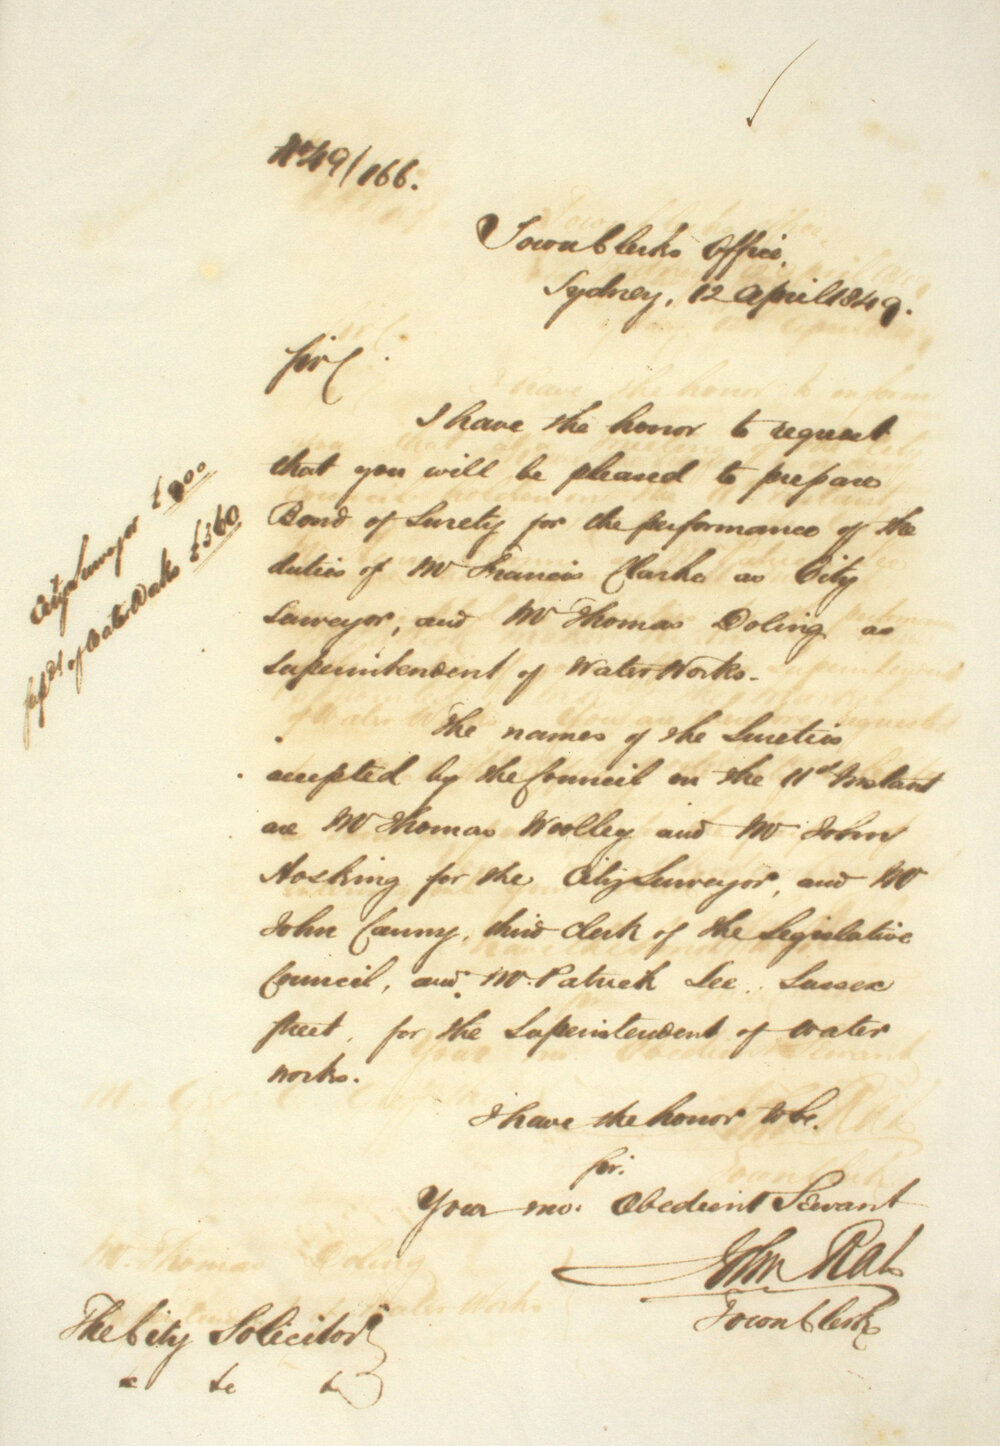 No 49/166.
Town Clerks Office,
Sydney, 12 April 1849.
Sir,
I have the honor to request
that you will be pleased to prepare
Bond of Surety for the performance of the
duties of Mr Francis Clarke as City
Surveyor, and Mr Thomas Doling as
Superintendent of Water Works.
The names of the Sureties
accepted by the Council on the 11th Instant
are Mr Thomas Woolley and Mr John
Hosking for the City Surveyor, and Mr
John Canny, third clerk of the Legislative
Council, and Mr. Patrick Lee, Sussex
Street, for the Superintendent of Water
Works.
I have the honor to be,
Sir,
Your mo: Obedient Servant
John Rae
Town Clerk
The City Solicitor
City Surveyor
Supdt of Water Works £360